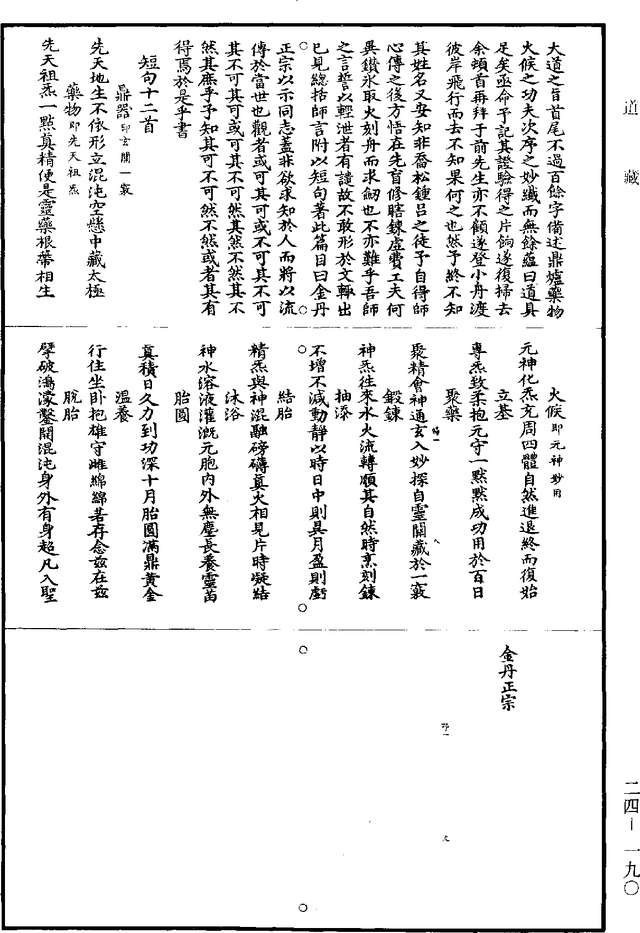 道藏
大道之旨首尾不過百餘字備述鼎爐藥物
火候之功夫次序之妙纖而無餘蘊曰道具
足矣亟命予記其證驗得之片餉遂復掃去
余頓首再拜于前先生亦不顧遂登小舟渡
彼岸飛行而去不知果何之也然予終不知
其姓名又安知非喬松鍾呂之徒予自得師
心傳之後方悟在先盲修瞎鍊虛費工夫何
異鑽氷取火刻舟而求劒也不亦難乎吾師
之言誓以輕泄者有譴故不敢形於文輒出
已見總括師言附以短句著此篇目曰金丹
正宗以示同志蓋非欲求知於人而將以流
傳於當世也觀者或可其可或不可其不可
其不可其可或可其不可然其然不然其不
然其庶乎予知其可不可然不然或者其有
得焉於是乎書
短句十二首
鼎器即玄關一竅
先天地生不依形立混沌空懸中藏太極
藥物即先天祖炁
先天祖炁一點真精便是靈藥根蔕相生
火候即元神妙用
元神化炁充周四體自然進退終而復始
立基
專炁致柔抱元守一默默成功用於百日
聚藥
聚精會神通玄入妙採自靈關藏於一竅
鍛鍊
神炁往來水火流轉順其自然時烹刻鍊
抽添
不增不減動靜以時日中則昃月盈則虧
結胎
精炁與神混融磅礴真火相見片時凝結
沐浴
神水溶液灌溉元胞內外無塵長養靈苗
胎圓
真積日久力到功深十月胎圓滿鼎黃金
溫養
行住坐卧抱雄守雌綿綿若存念兹在兹
脫胎
擘破鴻濛鑿開混沌身外有身超凡入聖
金丹正宗
二四－一九〇